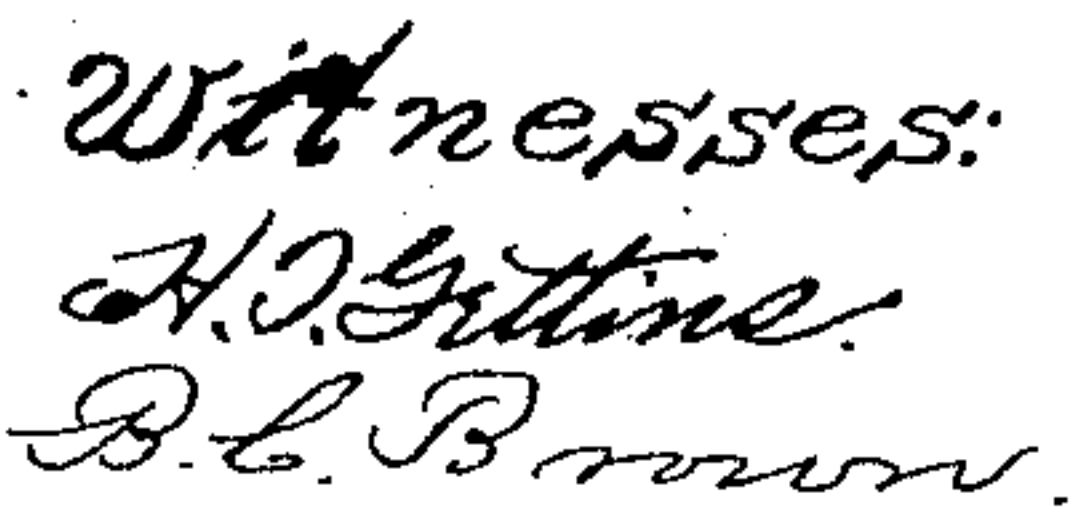 Witnesses:
H. T. Gettins.
B. C. Brown.